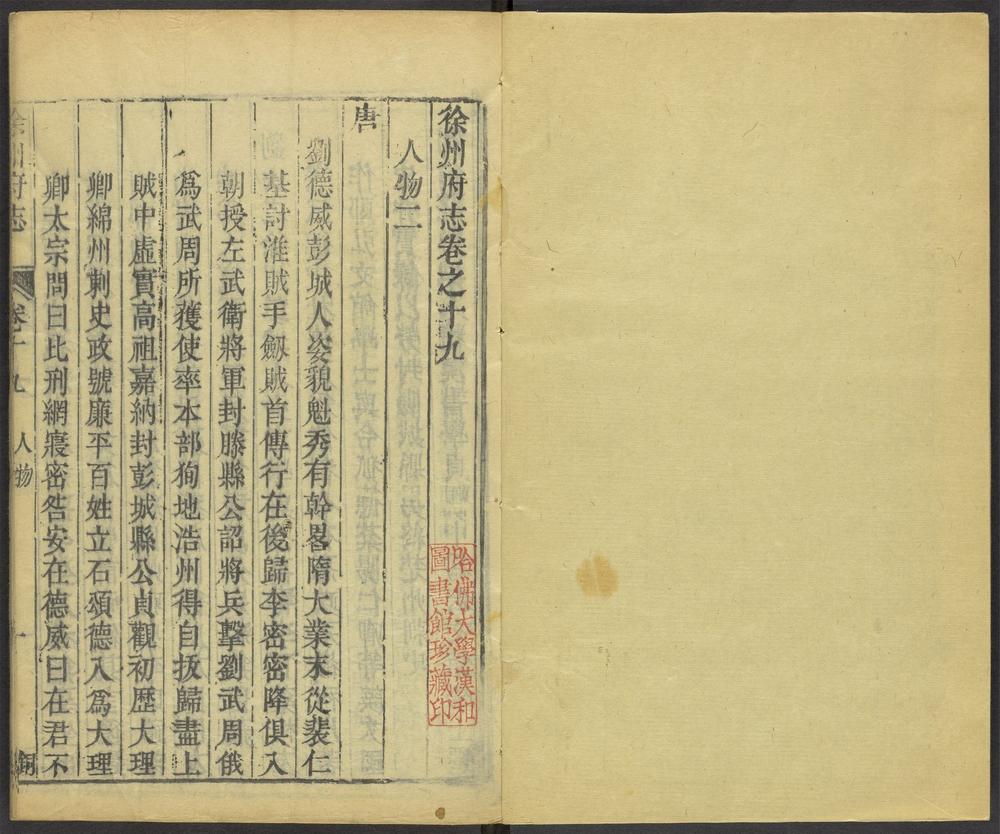 徐州府志卷之十九
人物二
唐
劉德威彭城人姿貌魁秀有幹畧隋大業末從裴仁
基討淮賊手劔賊首傳行在後歸李密密降俱入
朝授左武衛將軍封滕縣公詔將兵擊劉武周俄
爲武周所獲使率本部狥地浩州得自拔歸盡上
賊中虛實高祖嘉納封彭城縣公貞觀初歷大理
卿綿州刺史政號廉平百姓立石頌德入爲大理
卿太宗問曰比刑網寢密咎安在德威曰在君不
徐州府志
卷十九
人物
一
哈佛大學漢和
圖書館珍藏印